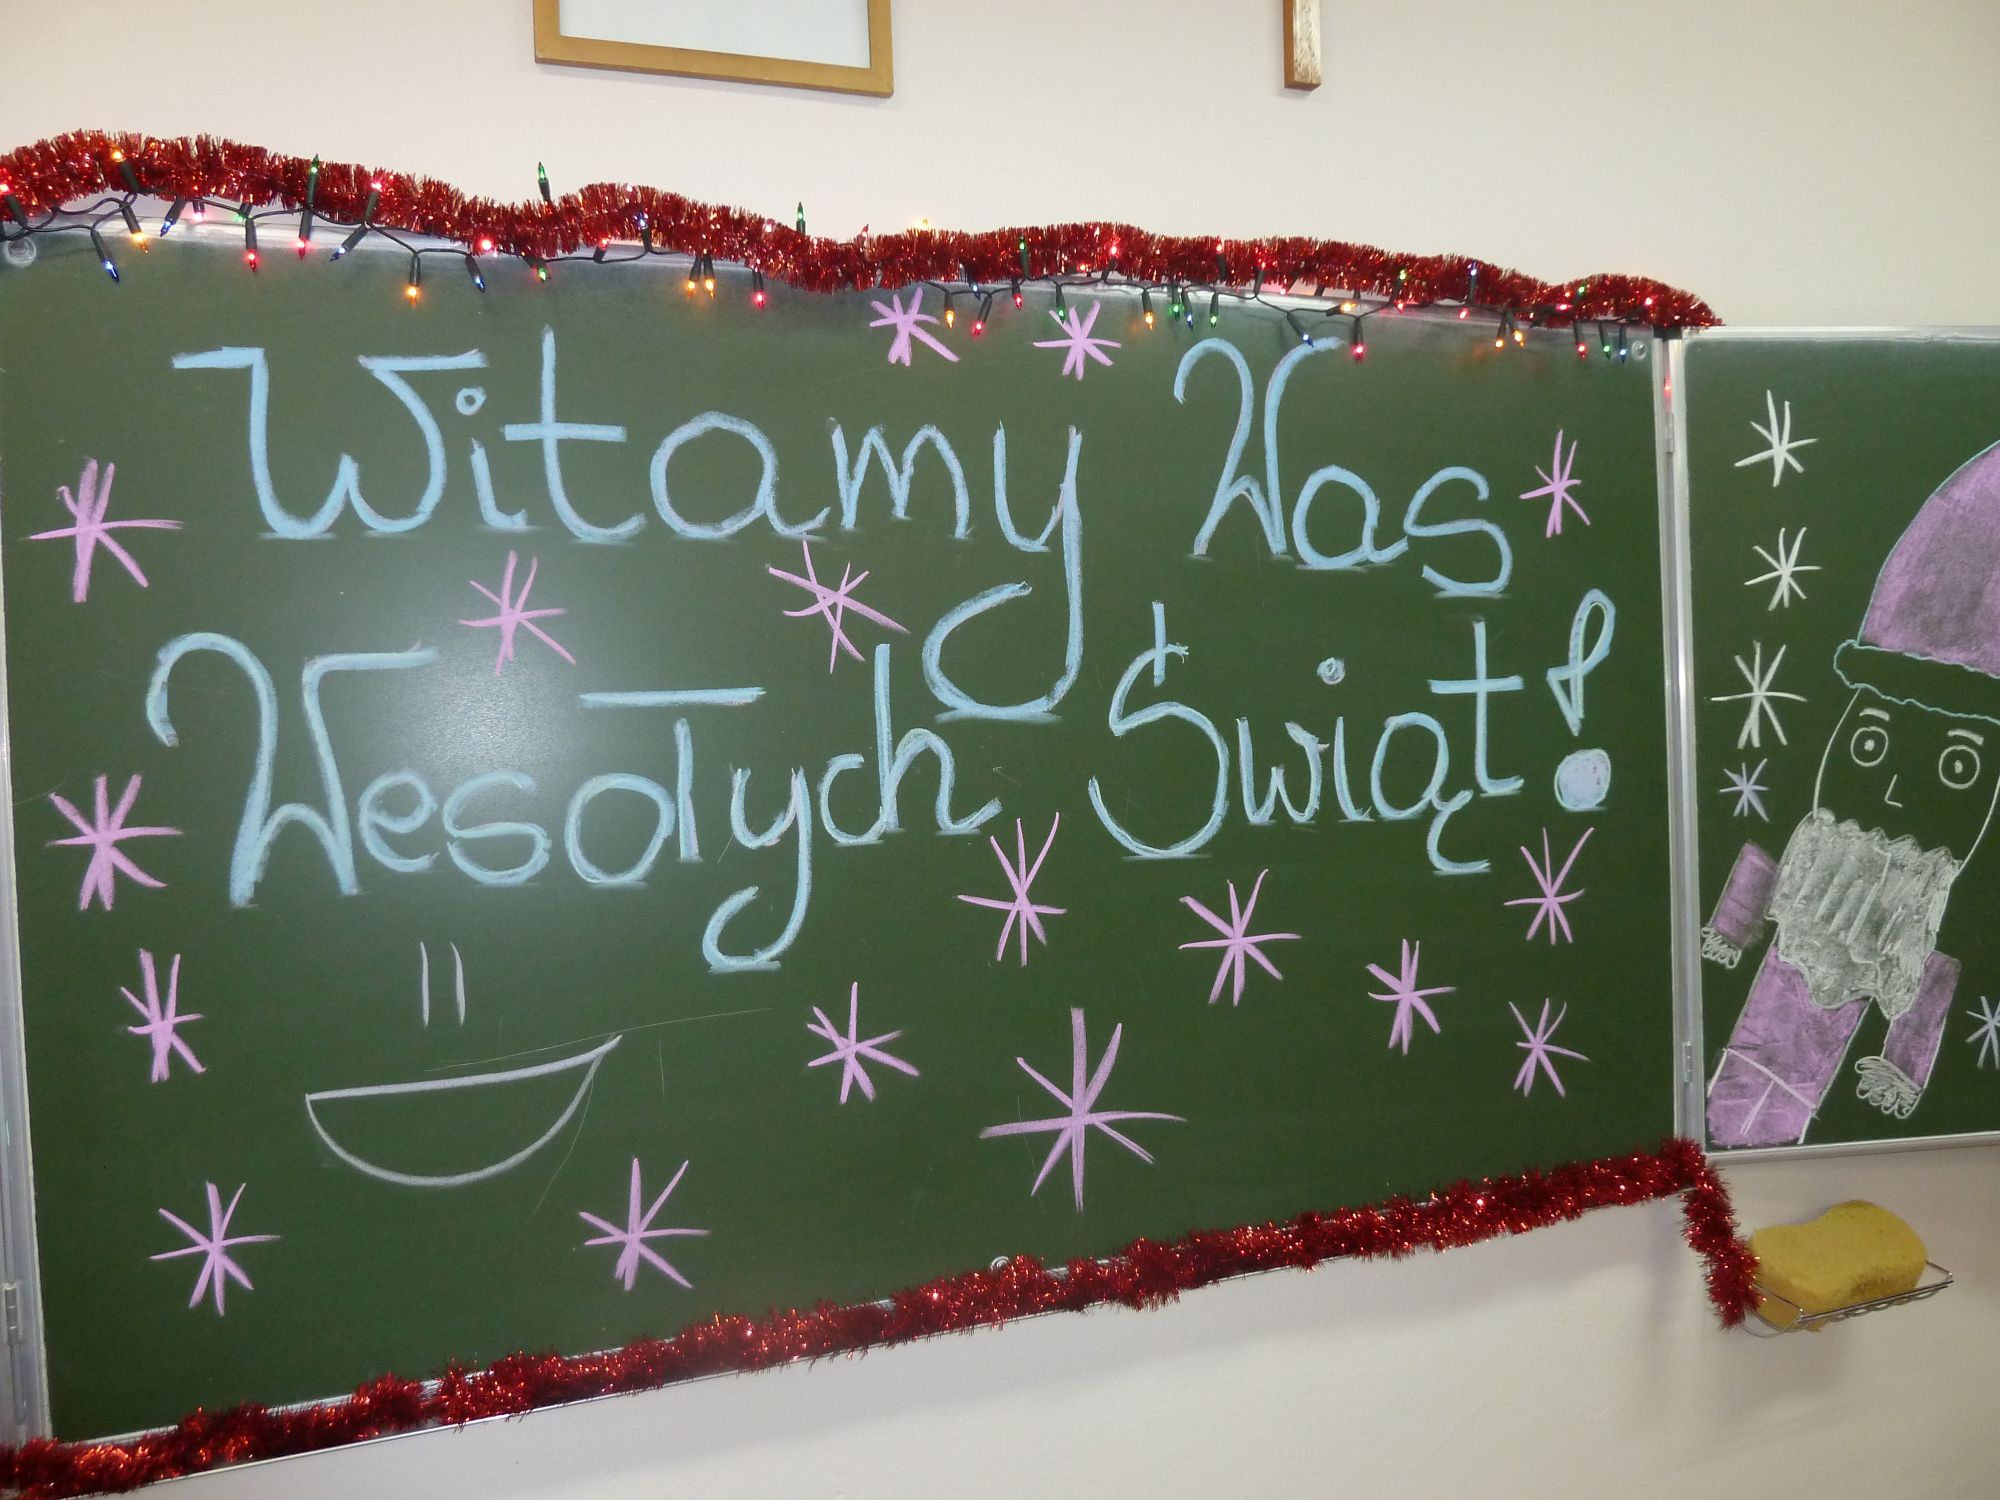 Witamy Was
Wesołych Świąt!